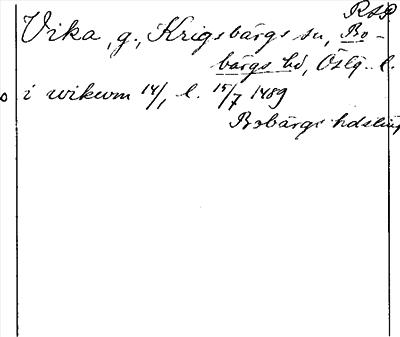 RAP
Vika, g., Krigsbärgs sn, Bo-
bärgs hd, Östg. l.
i wikwm 14/1 l. 15/7 1489
Bobärgs hdsting